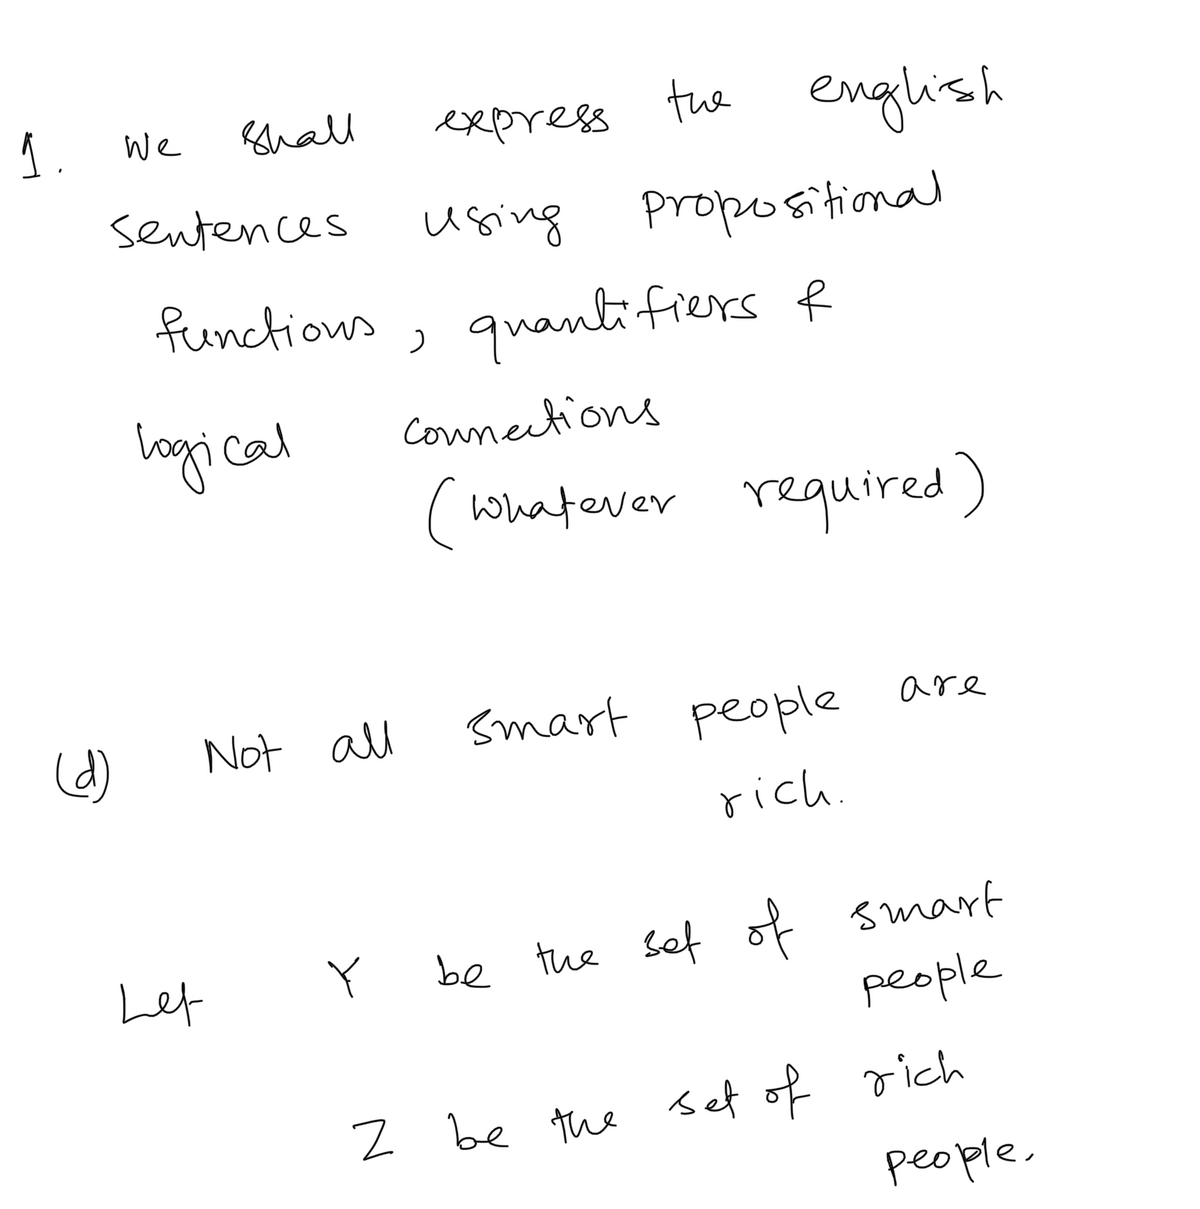 1. We shall express the english
sentences using propositional
functions, quantifiers &
logical connections
(whatever required)
(d) Not all smart people are
rich.
Let Y be the set of smart
people
Z be the set of rich
people.